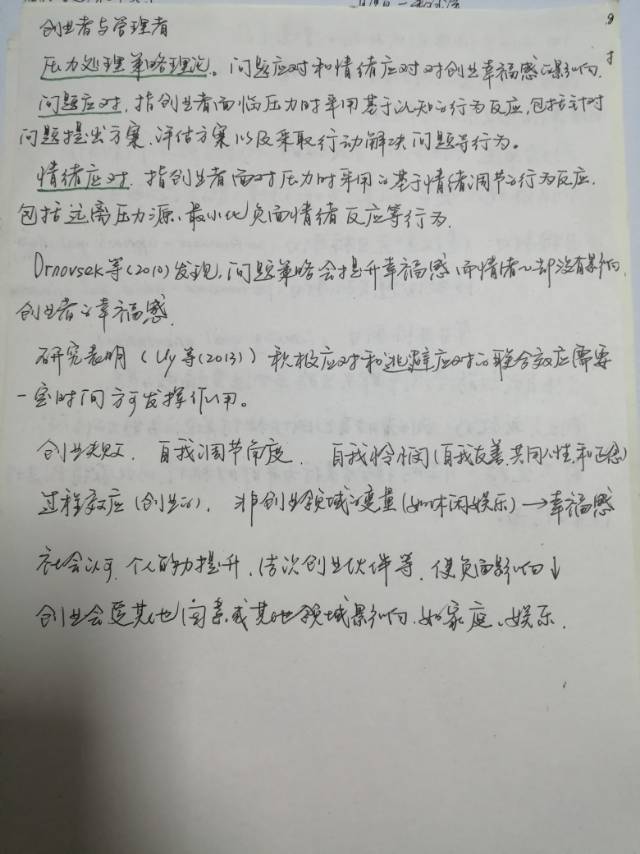 创业者与管理者
压力处理策略理论。问题应对和情绪应对对创业幸福感的影响.
问题应对.指创业者面临压力时采用基于认知的行为反应,包括针对
问题提出方案、评估方案以及采取行动解决问题等行为。
情绪应对.指创业者面对压力时采用的基于情绪调节的行为反应.
包括远离压力源、最小化负面情绪反应等行为.
Drnovsek等(2010)发现,问题策略会提升幸福感 而情绪~却没有影响
创业者的幸福感.
研究表明(Uy等(2013))积极应对和逃避应对的联合效应需要
一定时间方可发挥作用。
创业失败. 自我调节角度. 自我怜悯(自我友善,共同人性,和正念)
过程效应(创业的). 非创业领域的变量(如休闲娱乐)→幸福感
社会认可,个人能力提升,结次创业伙伴等.使负面影响↓
创业会受其他因素或其他领域影响.如家庭、娱乐.